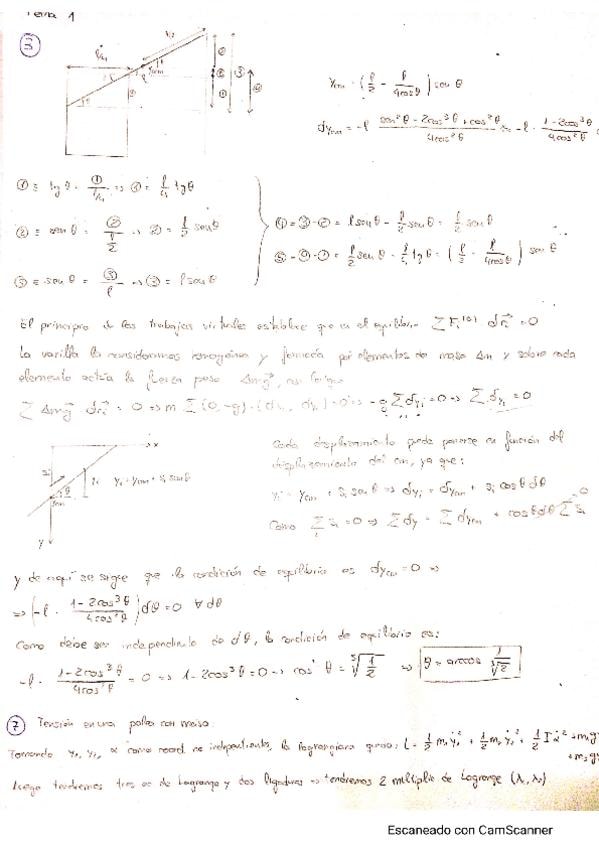 Tema 1
3
y_cm = (l/2 - l/(4cosθ)) senθ
dy_cm = -l · (sen²θ - 2cos³θ + cos²θ)/(4cos²θ) = -l · (1-2cos³θ)/(4cos²θ)
① ≡ tgθ = ①/(l/4) => ① = l/4 tgθ
② ≡ senθ = ②/(l/2) => ② = l/2 senθ
③ ≡ senθ = ③/l => ③ = l senθ
④ = ③-② = l senθ - l/2 senθ = l/2 senθ
⑤ = ④-① = l/2 senθ - l/4 tgθ = (l/2 - l/(4cosθ)) senθ
El principio de los trabajos virtuales establece que en el equilibrio
La varilla la consideramos homogénea y formada por elementos de masa Δm y sobre cada
elemento actúa la fuerza peso Δmg,
Σ Δmg dr_i = 0 => m Σ (0,-g)·(dx_i, dy_i) = 0 => -g Σ dy_i = 0 => Σ dy_i = 0
x
y_i = y_cm + s_i senθ
θ
y
Cada desplazamiento puede ponerse en función del
desplazamiento del cm, ya que:
y_i = y_cm + s_i senθ => dy_i = dy_cm + s_i cosθ dθ
Como Σ s_i = 0 => Σ dy = Σ dy_cm + cosθ dθ Σ s_i
y de aquí se sigue que la condición de equilibrio es dy_cm = 0 =>
=> (-l · (1-2cos³θ)/(4cos²θ)) dθ = 0 ∀ dθ
Como debe ser independiente de dθ, la condición de equilibrio es:
-l · (1-2cos³θ)/(4cos²θ) = 0 => 1-2cos³θ = 0 =>
7 Tensión en una polea con masa:
Tomando y₁, y₂, α como coord. no independientes, la lagrangiana queda: L = 1/2 m₁ẏ₁² + 1/2 m₂ẏ₂² + 1/2 Iα̇² + m₁g
+ m₂g
Luego tendremos tres ec de Lagrange y dos ligaduras => tendremos 2 multiplic de Lagrange (λ₁, λ₂)
Escaneado con CamScanner